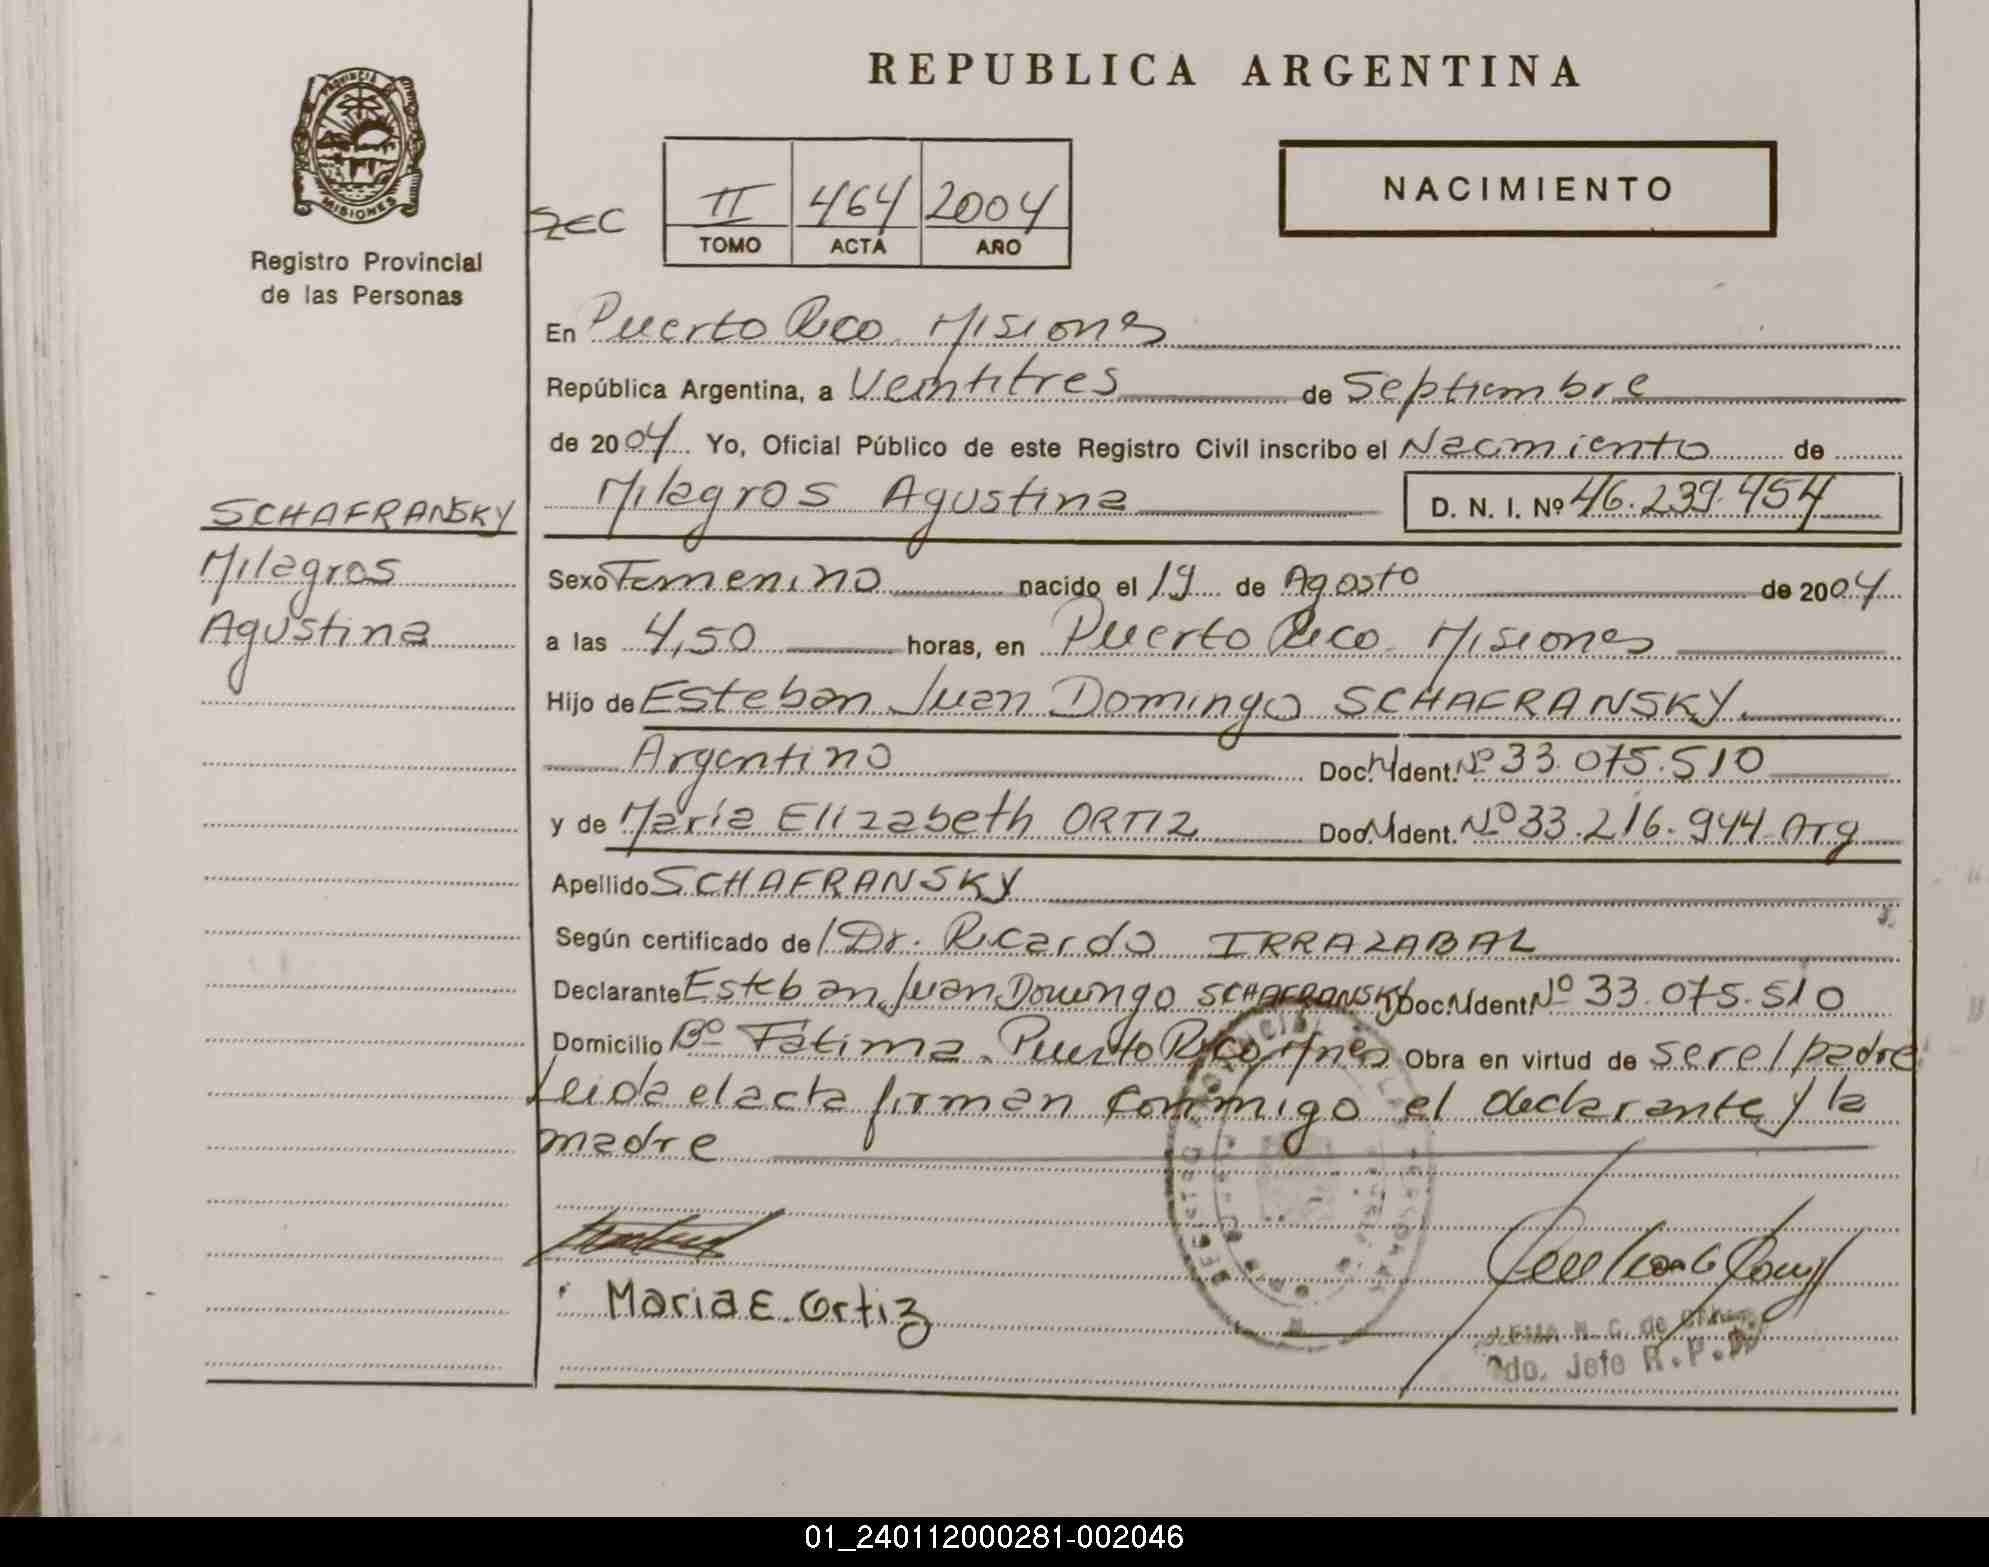 REPUBLICA ARGENTINA
PROVINCIA
MISIONES
Registro Provincial
de las Personas
SEC
II 464 2004
TOMO ACTA AÑO
NACIMIENTO
En Puerto Rico. Misiones
República Argentina, a Veintitres de Septiembre
de 2004 Yo, Oficial Público de este Registro Civil inscribo el Nacimiento de
Milagros Agustina D. N. I. Nº 46.239.454
SCHAFRANSKY
Milagros
Agustina
Sexo Femenino nacido el 19 de Agosto de 2004
a las 4,50 horas, en Puerto Rico. Misiones
Hijo de Esteban Juan Domingo SCHAFRANSKY
Argentino Doc. N Ident. Nº 33.075.510
y de María Elizabeth ORTIZ Doc. N Ident. Nº 33.216.944 Arg
Apellido SCHAFRANSKY
Según certificado de Dr. Ricardo IRRAZABAL
Declarante Esteban Juan Domingo SCHAFRANSKY Doc. N Ident. Nº 33.075.510
Domicilio Bº Fátima. Puerto Rico Mnes Obra en virtud de ser el padre
Leida el acta firman conmigo el declarante y la
madre
Maria E. Ortiz
N. C. de
2do. Jefe R.P.P.
01_240112000281-002046